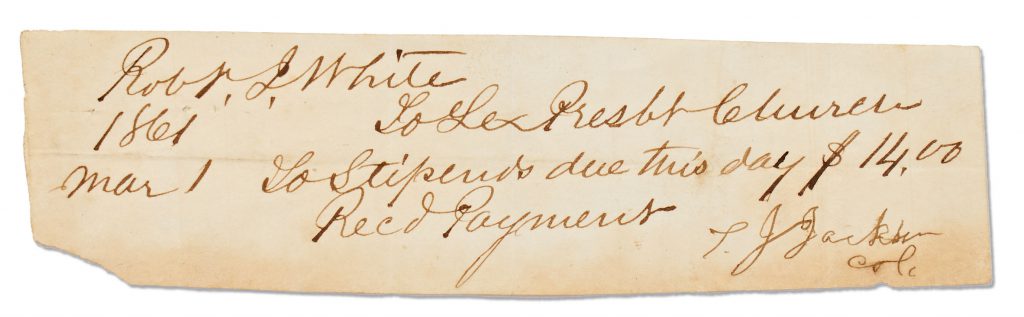 Robt. I. White
1861 To Lex Presbt Church
Mar 1 To Stipends due this day $14.00
Recd Payment T. J. Jackson
col.